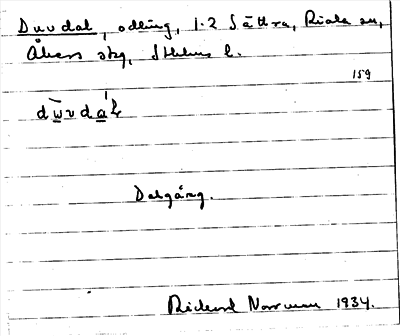 Duvdal, odling, 1.2 Sättra, Riala sn,
Åkers skg, Sthlms l.
159
Dalgång.
Rickard Norrman 1934.